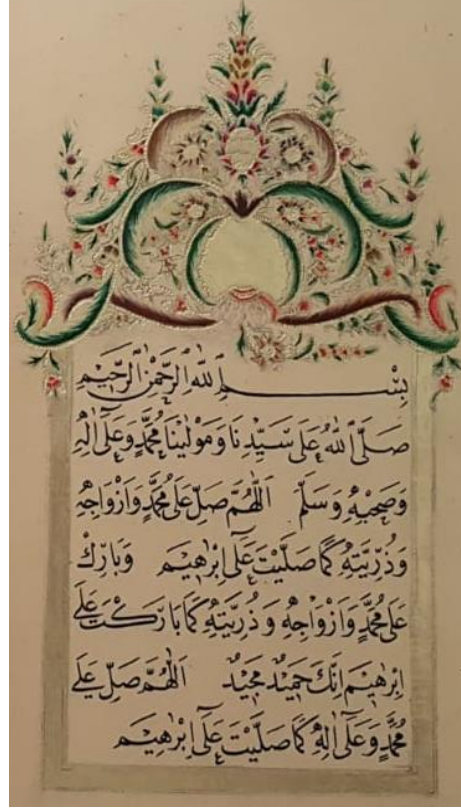 بِسْمِ ٱللّٰهِ ٱلرَّحْمٰنِ ٱلرَّحِيْمِ
صَلَّى ٱللّٰهُ عَلٰى سَيِّدِنَا وَمَوْلٰينَا مُحَمَّدٍ وَعَلٰٓى اٰلِهٖ
وَصَحْبِهٖ وَسَلَّمَ اَللّٰهُمَّ صَلِّ عَلٰى مُحَمَّدٍ وَاَزْوَاجِهٖ
وَذُرِّيَّتِهٖ كَمَا صَلَّيْتَ عَلٰٓى اِبْرٰهِيْمَ وَبَارِكْ
عَلٰى مُحَمَّدٍ وَاَزْوَاجِهٖ وَذُرِّيَّتِهٖ كَمَا بَارَكْتَ عَلٰٓى
اِبْرٰهِيْمَ اِنَّكَ حَمِيْدٌ مَجِيْدٌ اَللّٰهُمَّ صَلِّ عَلٰى
مُحَمَّدٍ وَعَلٰٓى اٰلِهٖ كَمَا صَلَّيْتَ عَلٰٓى اِبْرٰهِيْمَ